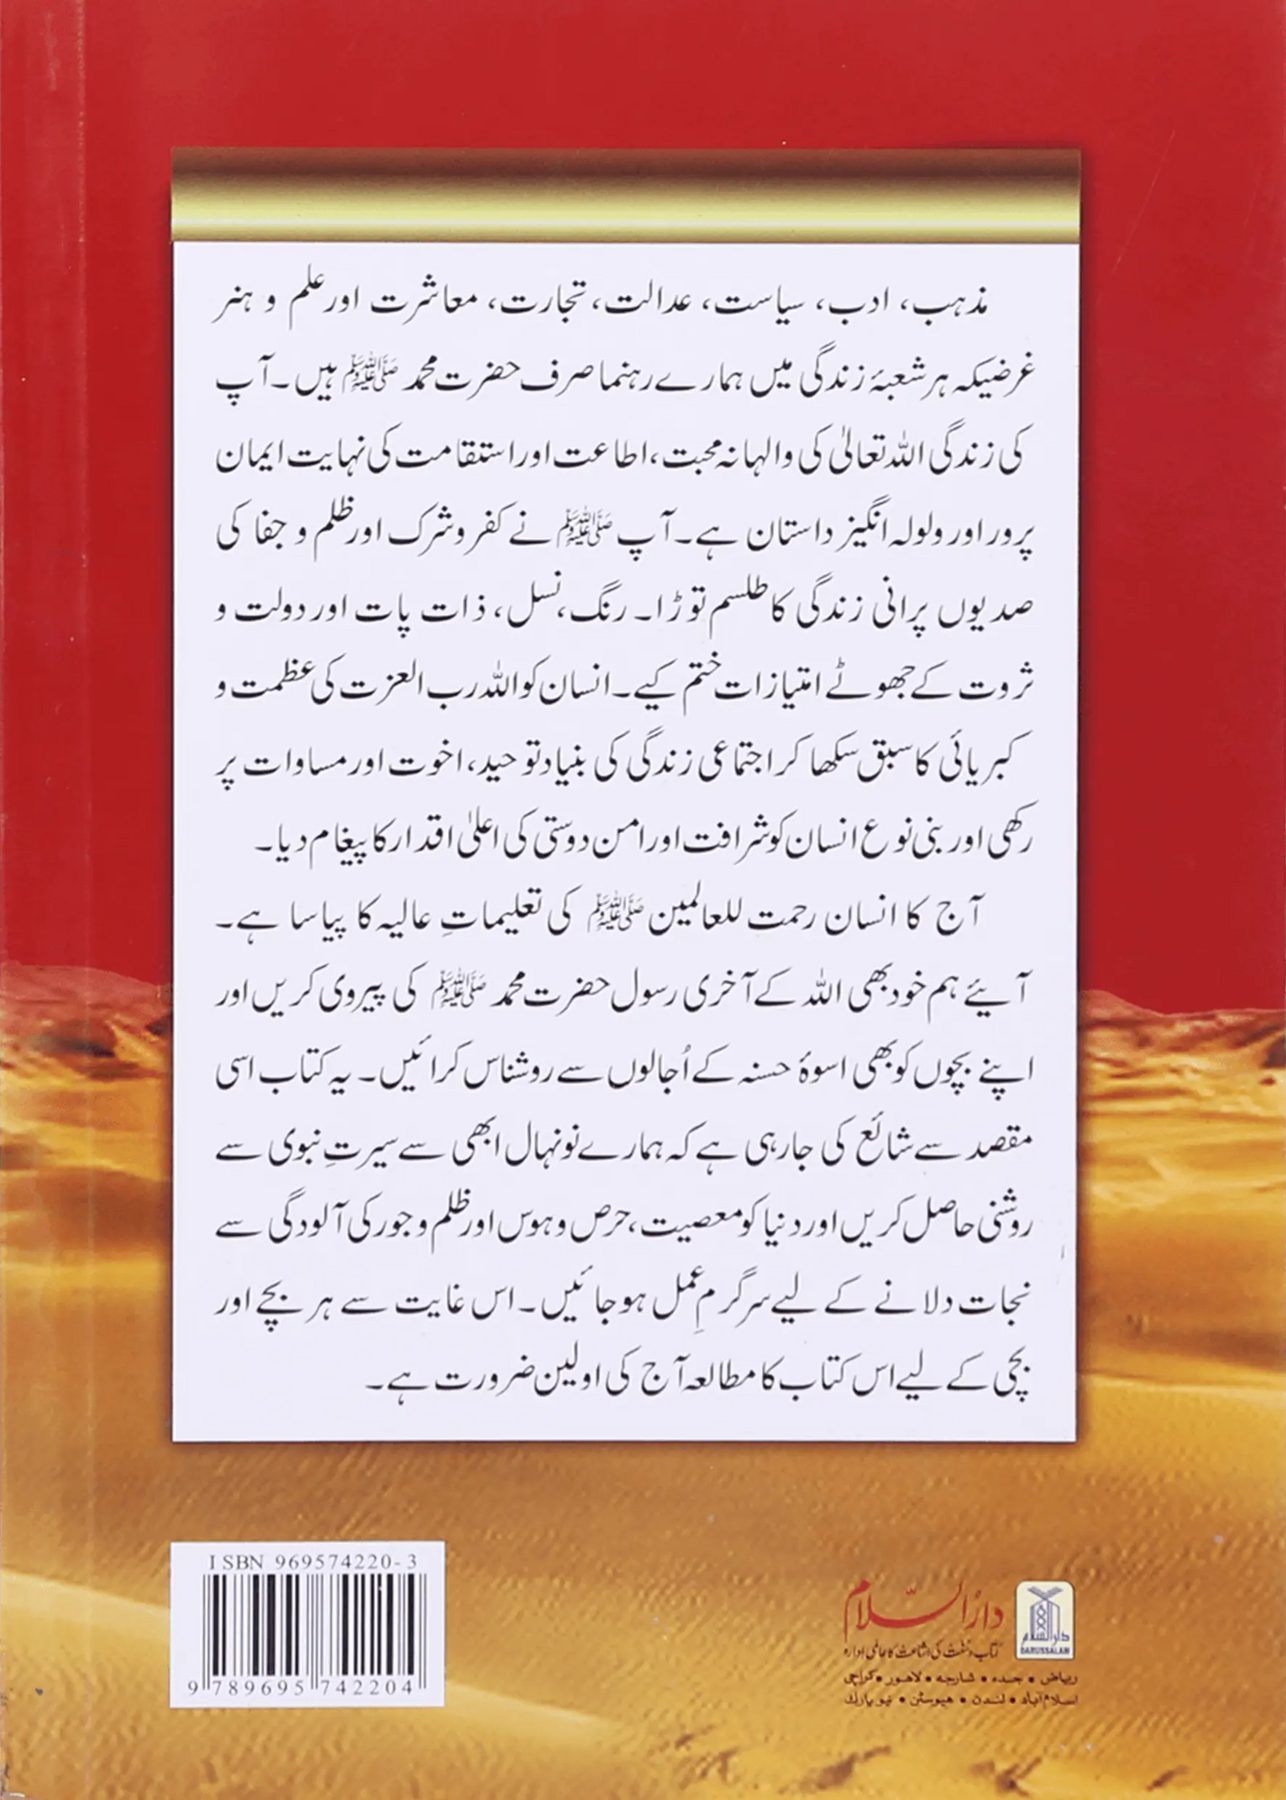 مذہب، ادب، سیاست، عدالت، تجارت، معاشرت اور علم و ہنر
غرضیکہ ہر شعبۂ زندگی میں ہمارے رہنما صرف حضرت محمد ﷺ ہیں۔ آپ
کی زندگی اللہ تعالیٰ کی والہانہ محبت، اطاعت اور استقامت کی نہایت ایمان
پرور اور ولولہ انگیز داستان ہے۔ آپ ﷺ نے کفر و شرک اور ظلم و جفا کی
صدیوں پرانی زندگی کا طلسم توڑا۔ رنگ، نسل، ذات پات اور دولت و
ثروت کے جھوٹے امتیازات ختم کیے۔ انسان کو اللہ رب العزت کی عظمت و
کبریائی کا سبق سکھا کر اجتماعی زندگی کی بنیاد توحید، اخوت اور مساوات پر
رکھی اور بنی نوع انسان کو شرافت اور امن دوستی کی اعلیٰ اقدار کا پیغام دیا۔
آج کا انسان رحمت للعالمین ﷺ کی تعلیماتِ عالیہ کا پیاسا ہے۔
آیئے ہم خود بھی اللہ کے آخری رسول حضرت محمد ﷺ کی پیروی کریں اور
اپنے بچوں کو بھی اسوۂ حسنہ کے اُجالوں سے روشناس کرائیں۔ یہ کتاب اسی
مقصد سے شائع کی جا رہی ہے کہ ہمارے نونہال ابھی سے سیرتِ نبوی سے
روشنی حاصل کریں اور دنیا کو معصیت، حرص و ہوس اور ظلم و جور کی آلودگی سے
نجات دلانے کے لیے سرگرمِ عمل ہو جائیں۔ اس غایت سے ہر بچے اور
بچی کے لیے اس کتاب کا مطالعہ آج کی اولین ضرورت ہے۔
ISBN 969574220-3
9 789695 742204
دارُالسّلام
کتاب و سنت کی اشاعت کا عالمی ادارہ
ریاض • جدہ • شارجہ • لاہور • کراچی
اسلام آباد • لندن • ہیوسٹن • نیو یارک
دارالسلام
DARUSSALAM